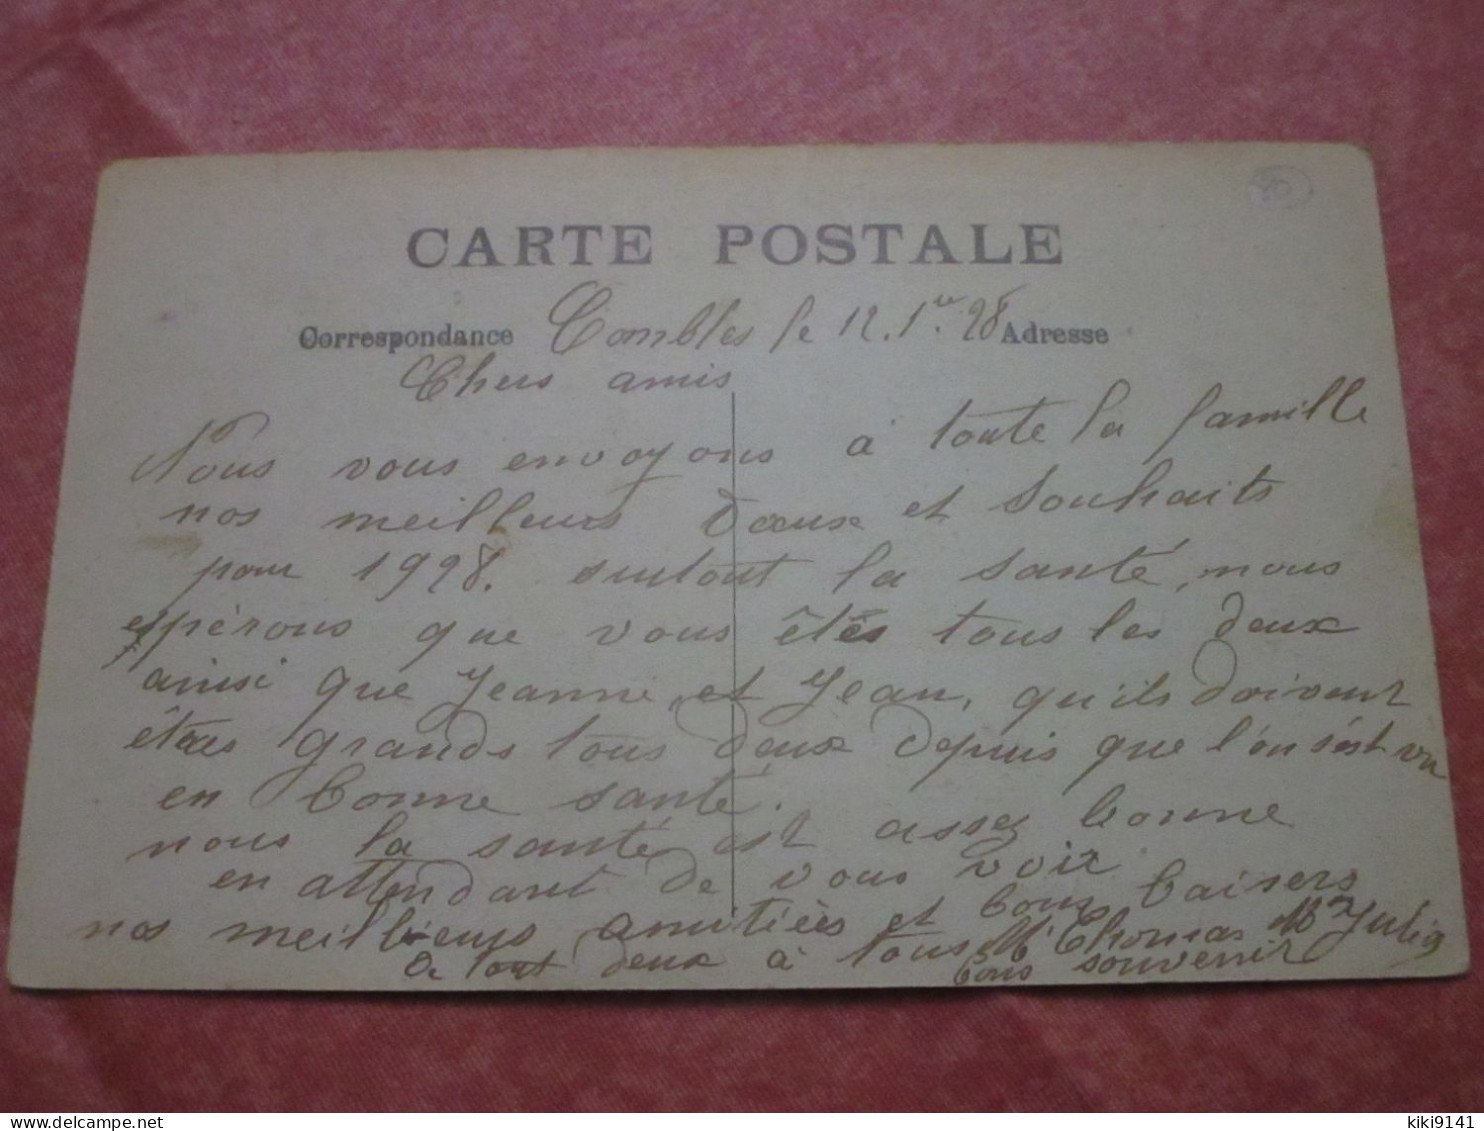 CARTE POSTALE
Correspondance Combles le 12. 1er. 28 Adresse
Chers amis
Nous vous envoyons à toute la famille
nos meilleurs vœux et souhaits
pour 1928. surtout la santé, nous
espérons que vous êtes tous les deux
ainsi que Jeanne, et Jean, qu'ils doivent
êtres grands tous deux depuis que l'on s'est vu
en bonne santé.
nous la santé est assez bonne
en attendant de vous voir
nos meilleurs amitiées et bons baisers
de tout deux à tous Mr Thomas Mme Julia
bons souvenir
kiki9141